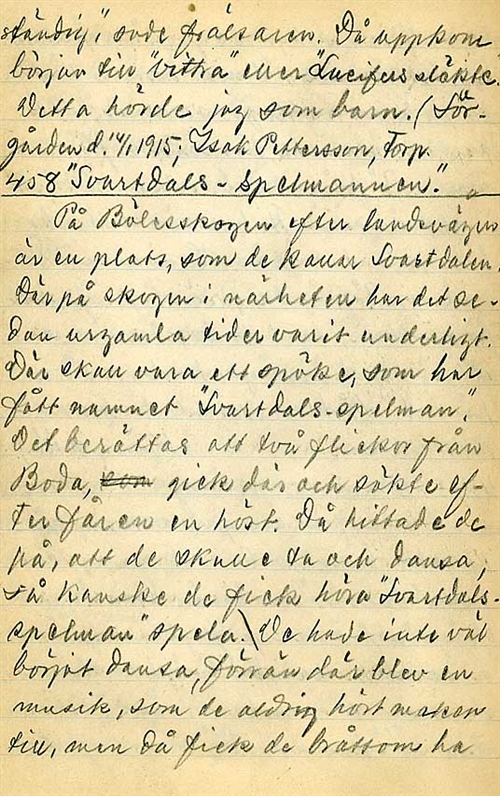 ständig", sade frälsaren. Då uppkom
början till "vittra" eller "Lucifers släkte".
Detta hörde jag som barn. (Sör-
gården d. 14/1 1915; Isak Pettersson, Torp.
458 "Svartdals-spelmannen."
På Bölesskogen efter landsvägen
är en plats, som de kallar Svartdalen.
Där på skogen i närheten har det se-
dan urgamla tider varit underligt.
Där skall vara ett spöke, som har
fått namnet "Svartdals-spelman".
Det berättas att två flickor från
Boda, som gick där och sökte ef-
ter fåren en höst. Då hittade de
på, att de skulle ta och dansa,
så kanske de fick höra "Svartdals-
spelman" spela. De hade inte väl
börjat dansa, förrän där blev en
musik, som de aldrig hört maken
till, men då fick de bråttom ha